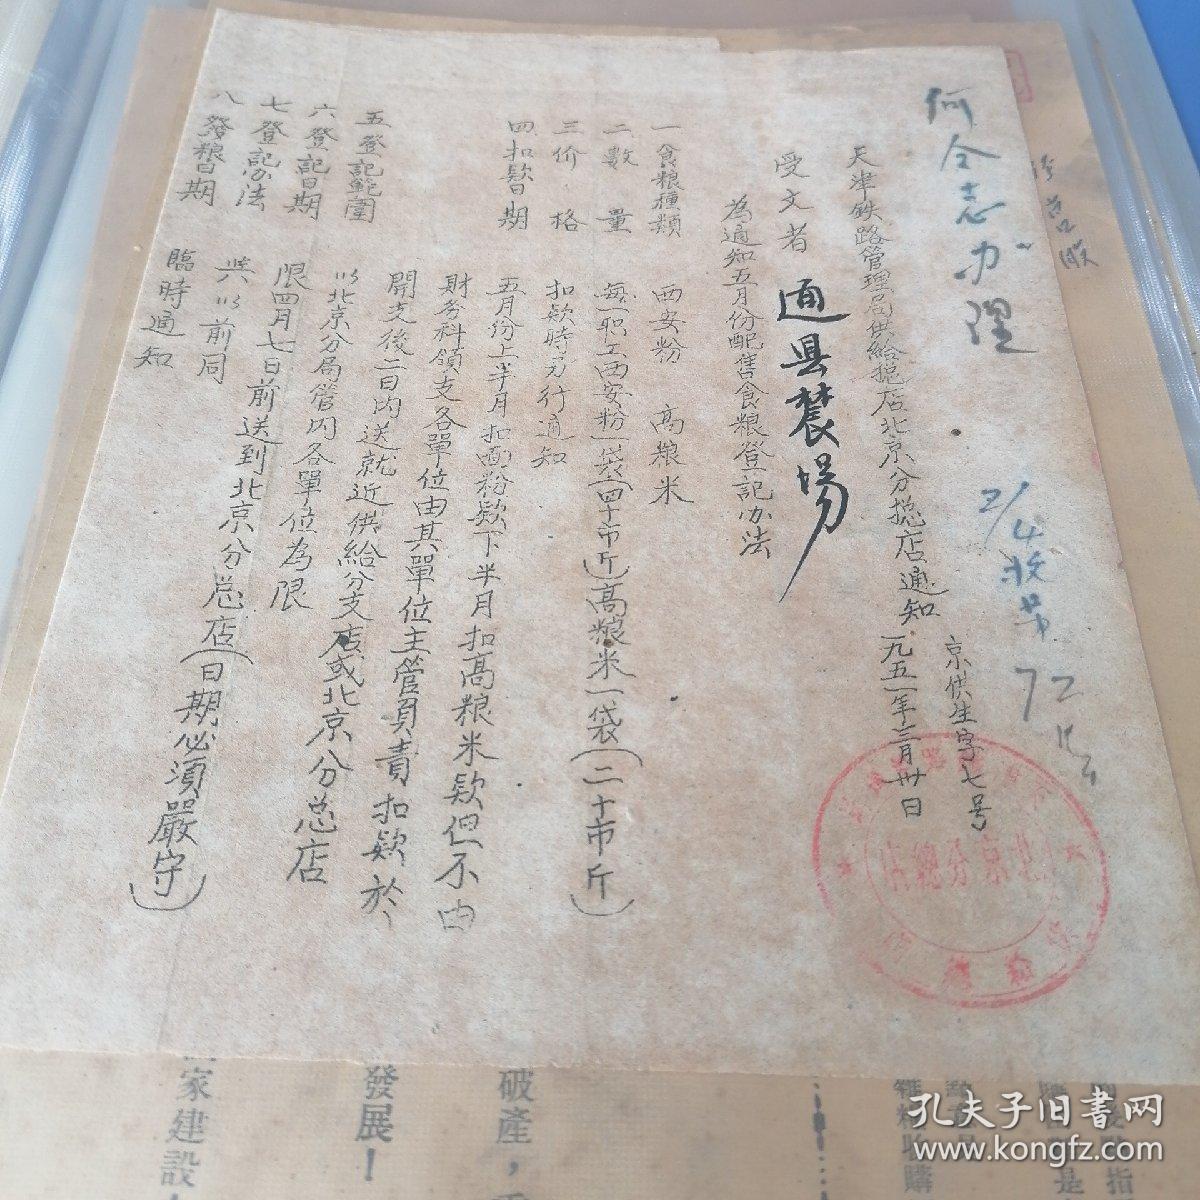 何仝志办理
2/4收第72号
天津铁路管理局供给捴店北京分捴店通知
京供生字七号
一九五一年三月卅日
受文者 通县農場
為通知五月份配售食粮登记办法
一食粮種類 西安粉 高粮米
二數量 每一职工西安粉一袋(四十市斤)高粮米一袋(二十市斤)
三价格 扣欵時另行通知
四扣欵日期 五月份上半月扣面粉欵下半月扣高粮米欵但不由
財务科領支各單位由其單位主管員責扣欵於
開支後二日内送就近供給分支店或北京分总店
五登记範圍 以北京分局管内各單位為限
六登记日期 限四月七日前送到北京分总店(日期必須嚴守)
七登记办法 與以前同
八發粮日期 臨時通知
北京分總店
家建設
發展！
破產，
購
是
指
孔夫子旧书网
www.kongfz.com